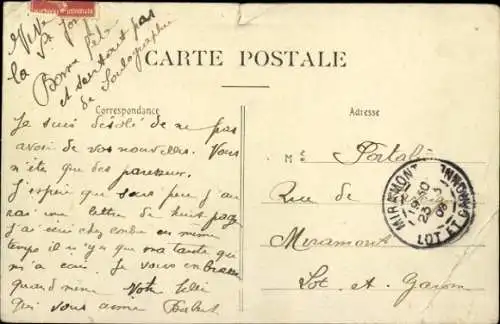 Vive
la St
Bonne fête
et surtout pas
de Soulographie
CARTE POSTALE
Correspondance
Adresse
Je suis désolé de ne pas
avoir de vos nouvelles. Vous
n'ête que des paresseux.
J'espère que sous peu j'au
rai une lettre de huit pages
J'ai écrit chez en même
temps il n'y a que ma tante qui
m'a écrit. Je vous embrasse
quand même Votre
qui vous aime
M
Rue de
Miramont
Lot et Garonne
MIRAMONT
23
08
LOT ET G